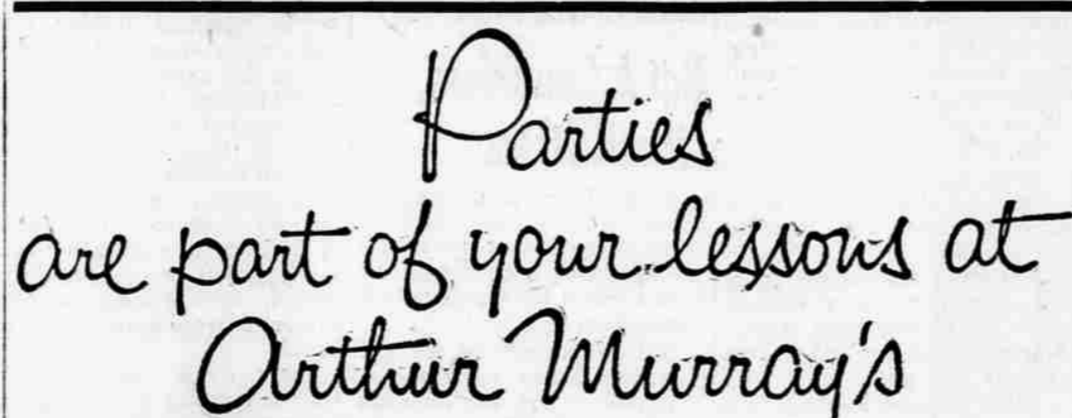 Parties
are part of your lessons at
Arthur Murray's